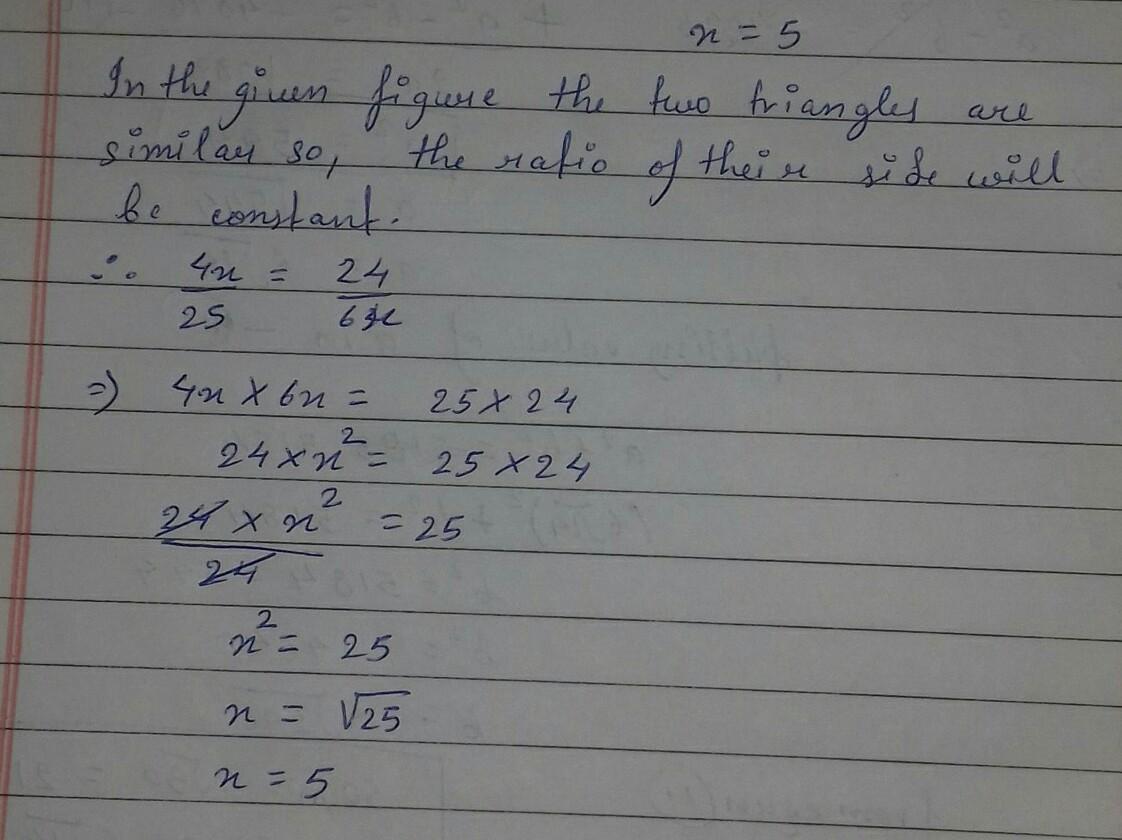 x = 5
In the given figure the two triangles are
similar so, the ratio of their side will
be constant.
∴ 4x/25 = 24/6x
⇒ 4x × 6x = 25 × 24
24 × x² = 25 × 24
24 × x²/24 = 25
x² = 25
x = √25
x = 5